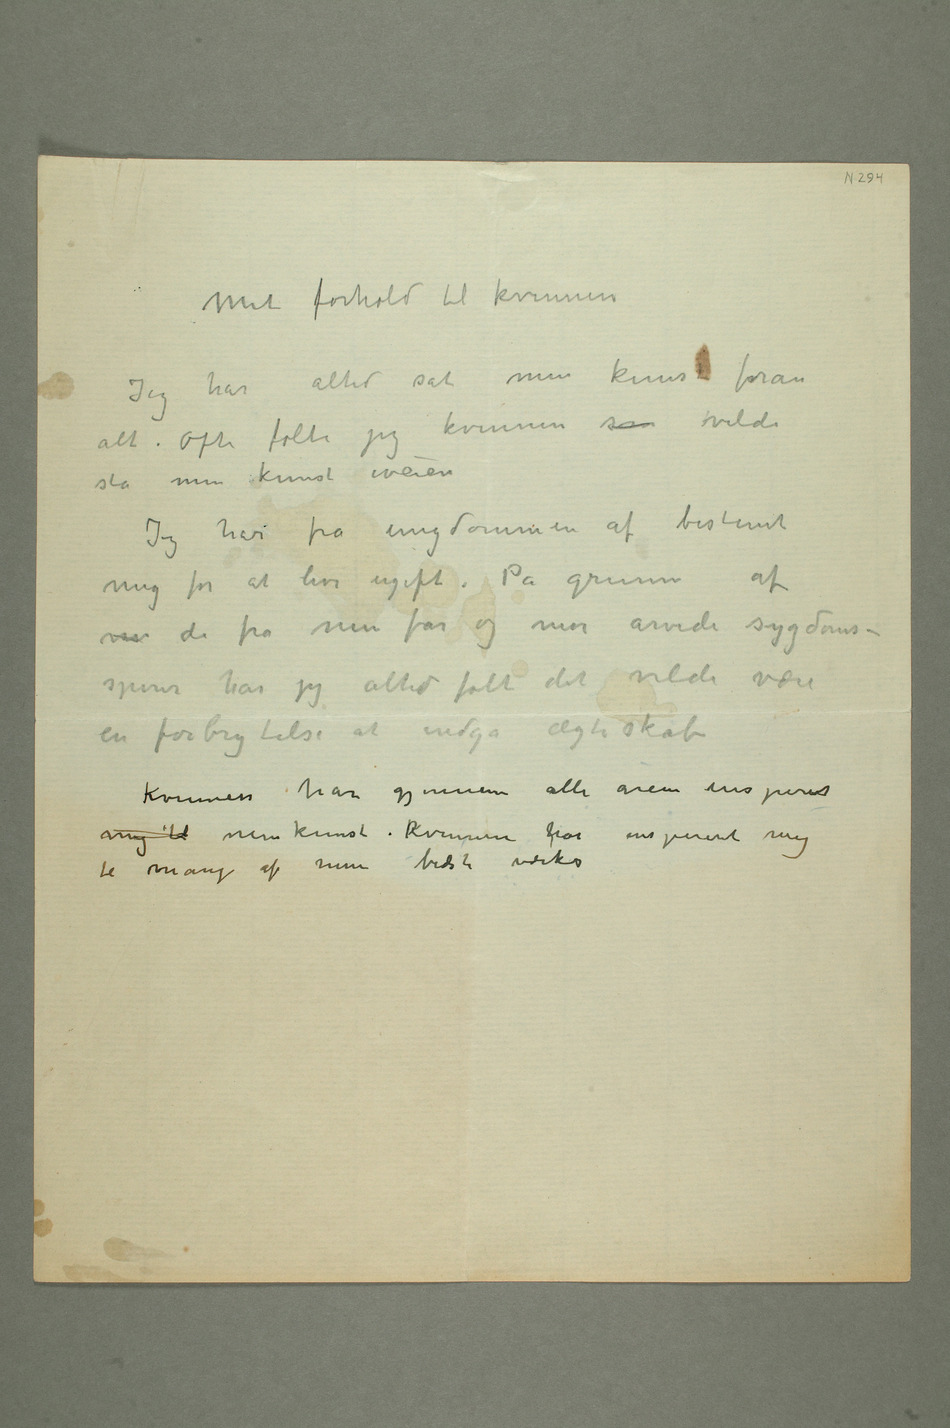 N 294
Mit forhold til kvinnen
Jeg har altid sat min kunst foran
alt. Ofte følte jeg kvinnen som vilde
stå min kunst iveien
Jeg har fra ungdommen af bestemt
mig for at leve ugift. På grunn af
de fra min far og mor arvede sygdoms-
spirer har jeg altid følt det vilde være
en forbrytelse at indgå ægteskab
Kvinnen har gjennem alle årene inspireret
mig til min kunst. Kvinnen har inspireret mig
til mange af mine bedste værker